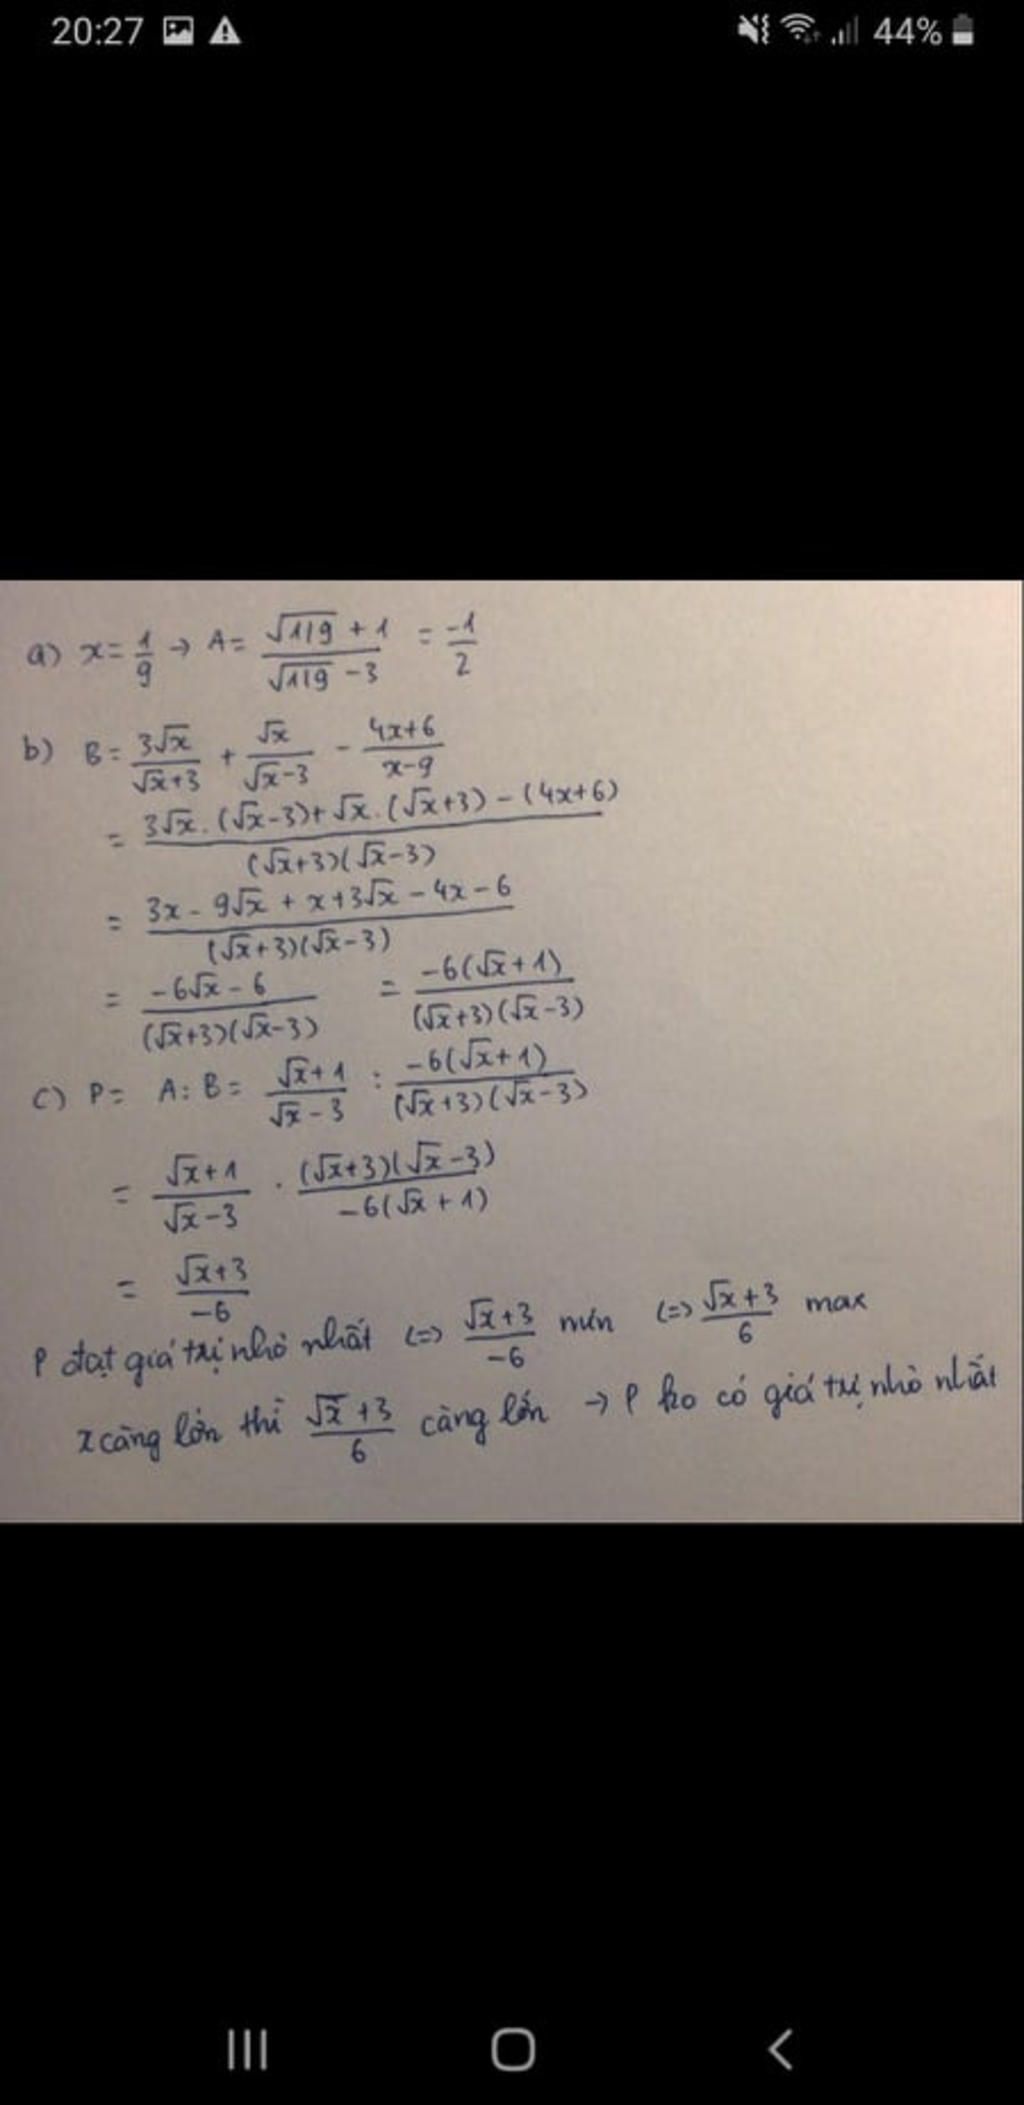 20:27 44%
a) x = 1/9 → A = (√1/9 + 1)/(√1/9 - 3) = -1/2
b) B = 3√x/(√x+3) + √x/(√x-3) - (4x+6)/(x-9)
= (3√x.(√x-3) + √x.(√x+3) - (4x+6))/((√x+3)(√x-3))
= (3x - 9√x + x + 3√x - 4x - 6)/((√x+3)(√x-3))
= (-6√x - 6)/((√x+3)(√x-3)) = -6(√x+1)/((√x+3)(√x-3))
c) P = A : B = (√x+1)/(√x-3) : -6(√x+1)/((√x+3)(√x-3))
= (√x+1)/(√x-3) . (√x+3)(√x-3)/(-6(√x+1))
= (√x+3)/-6
P đạt giá trị nhỏ nhất (=> (√x+3)/-6 min (=> (√x+3)/6 max
x càng lớn thì (√x+3)/6 càng lớn → P ko có giá trị nhỏ nhất